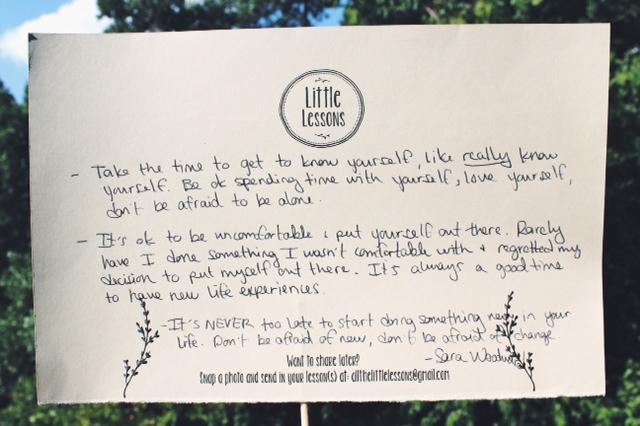 Little
Lessons
- Take the time to get to know yourself, like really know
yourself. Be ok spending time with yourself, love yourself,
don't be afraid to be alone.
- It's ok to be uncomfortable & put yourself out there. Rarely
have I done something I wasn't comfortable with & regretted my
decision to put myself out there. It's always a good time
to have new life experiences.
- It's NEVER too late to start doing something new in your
life. Don't be afraid of new, don't be afraid of change.
- Sara
Want to share later?
Snap a photo and send in your lesson(s) at: allthelittlelessons@gmail.com